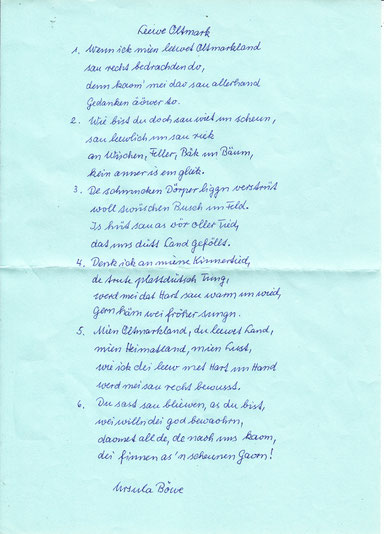 Leewe Altmark
1. Wenn ick mien leewet Altmarkland
sau recht bedrachden do,
denn kaom' mei dao sau allerhand
Gedanken äöwer so.
2. Wie bist du doch sau wiet un scheun,
sau lewlich un sau riek
an Wischen, Feller, Bäk un Bäum,
kein anner is em gliek.
3. De schmucken Dörper liggn verstrüt
woll twischen Busch un Feld.
Is hüt sau as vör oller Tied,
dat uns dütt Land geföllt.
4. Denk ick an miene Kinnertied,
de trute plattdütsch Tung,
werd mei dat Hart sau warm un wied,
gern häm wei fröher sungn.
5. Mien Altmarkland, du leewet Land,
mien Heimatland, mien Lust,
wie ick dei leew met Hart un Hand
werd mei sau recht bewusst.
6. Du sast sau bliewen, as du bist,
wei willn dei god bewaohrn,
daomet all de, de naoh uns kaom,
dei finnen as 'n scheunen Gaorn!
Ursula Böwe